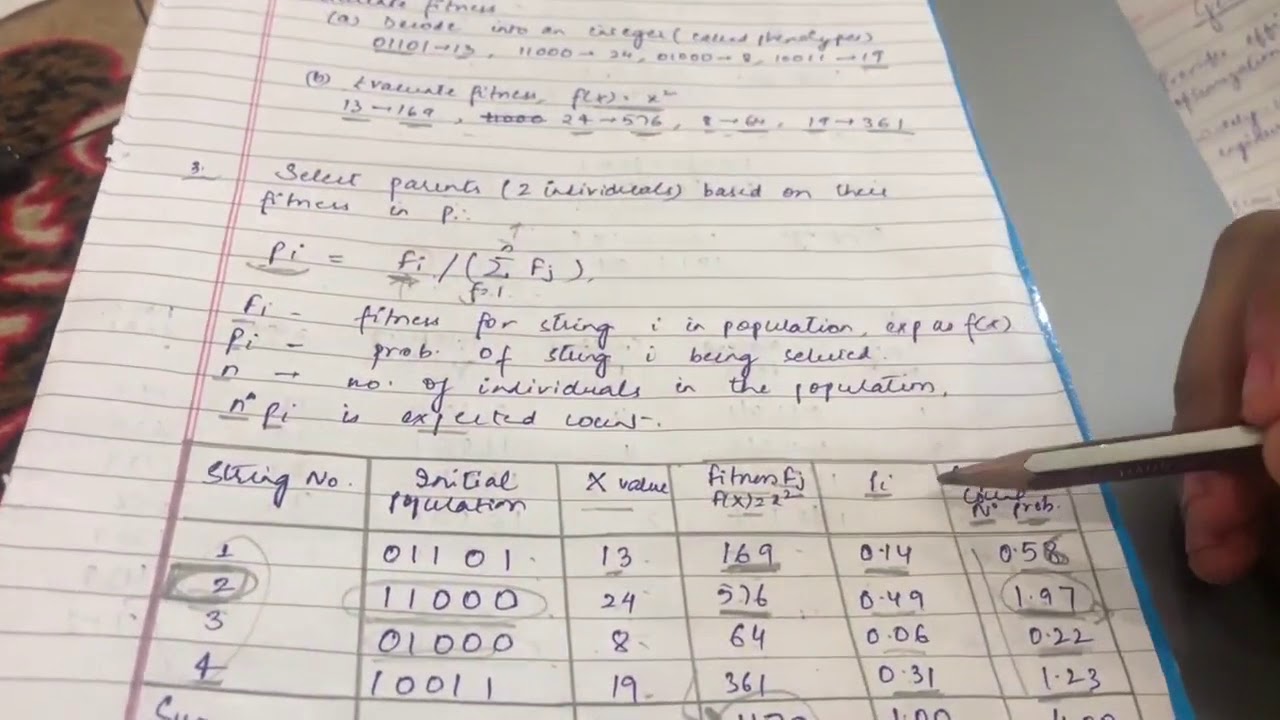 fitness.
(a) Decode into an integer (called phenotypes)
01101→13, 11000→24, 01000→8, 10011→19
(b) Evaluate fitness, f(x)=x²
13→169, 11000 24→576, 8→64, 19→361
3. Select parents (2 individuals) based on their
fitness in Pi:
Pi = Fi / (Σ Fj),
n
j=1
Fi - fitness for string i in population, exp as f(x)
Pi - prob. of string i being selected.
n → no. of individuals in the population.
n* Pi is expected count.
String No. Initial Population X value Fitness Fj f(X)=x² Pi count N* prob.
1 01101 13 169 0.14 0.58
2 11000 24 576 0.49 1.97
3 01000 8 64 0.06 0.22
4 10011 19 361 0.31 1.23
1.00